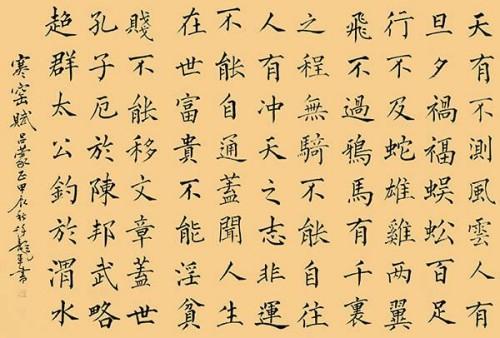 天有不測風雲人有
旦夕禍福蜈蚣百足
行不及蛇雄雞兩翼
飛不過鴉馬有千裏
之程無騎不能自往
人有冲天之志非運
不能自通蓋聞人生
在世富貴不能淫貧
賤不能移文章蓋世
孔子厄於陳邦武略
超群太公釣於渭水
寒窑賦吕蒙正甲辰秋書